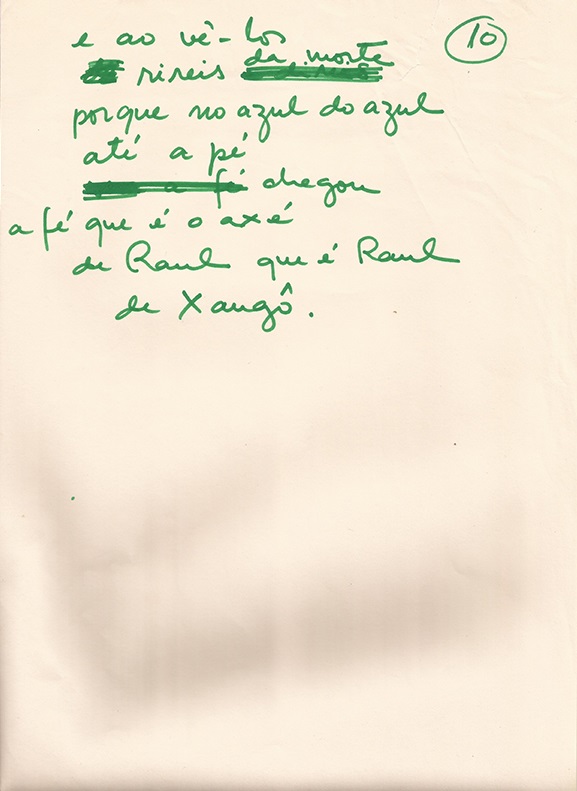 10
e ao vê-los
rireis da morte
porque no azul do azul
até a pé
a fé chegou
a fé que é o axé
de Raul que é Raul
de Xangô.